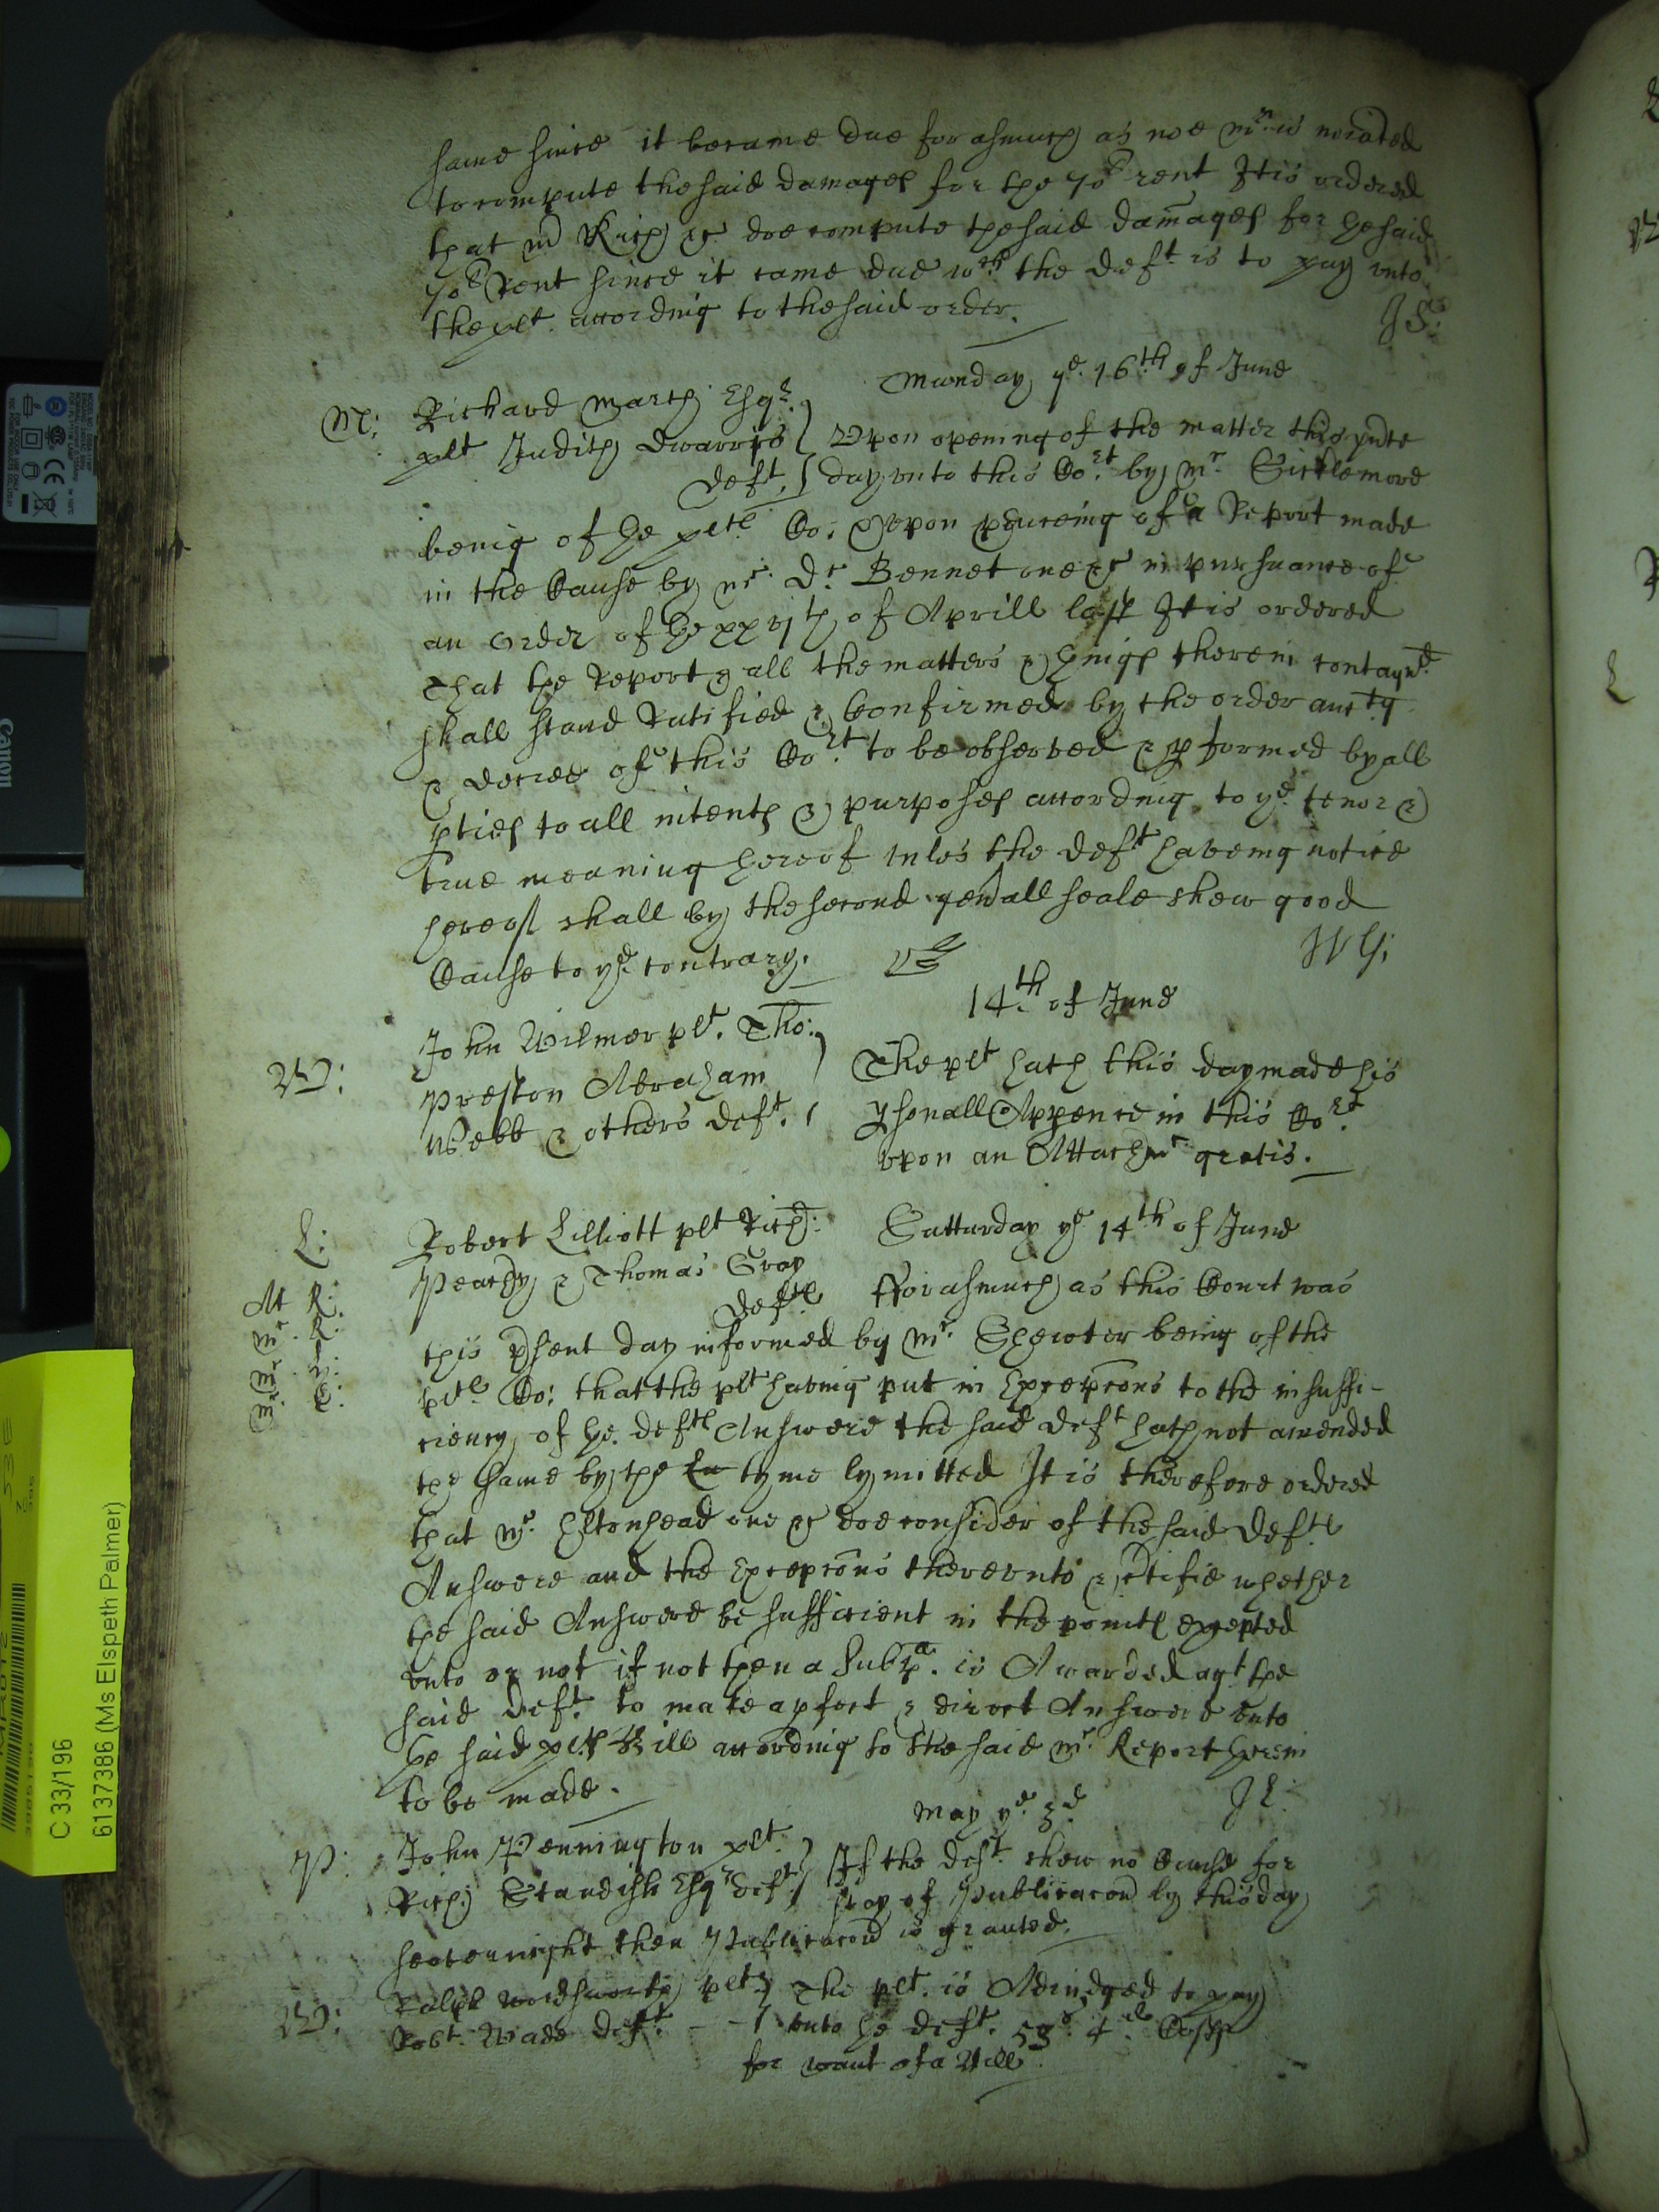 same since it became due for asmuch as noe mr. is no͠iated
to compute the said damages for the 70l rent It is ordered
that mr Rich &c. doe compute the said damages for the said
70l Rent since it came due wch the Deft. is to pay vnto
the plt. according to the said order.
JS:
Munday ye. 16th of June
M:
Richard March Esqr.
plt Judith Dwarris
Deft.
Vpon opening of the matter this pnte
day vnto this Cort. by mr. Sicklemore
being of the pltes Co: & vpon pducing of a Report made
in the Cause by mr. Dr. Bennet one &c in pursuance of
an order of the xxvjth of Aprill last It is ordered
That the Report & all the matters & things therein contaynd.
shall stand Ratified & Confirmed by the order aucty
& decree of this Cort. to be observed & pformed by all
pties to all intents & purposes according to ye. tenor &
true meaning hereof vnles the Deft haveing notice
hereof shall by the second genall seale shew good
Cause to ye. contrary.
14th. of June
W:
John Wilmer plt. Tho:
Preston Abraham
Webb & others Deft.
The plt hath this day made his
psonall Appence in this Cort.
vpon an Attachmt. gratis.
L:
Robert Lilliott plt Rich:
Peachy & Thomas Gray
Deftes
Satturday ye 14th of June
At R:
mr. R:
Forasmuch as this Court was
this psent day informed by mr. Shewter being of the
pltes. Co: that the plt having put in Excepcons to the insuffi-
ciency of the deftes Answere the said Deft hath not amended
the same by the tyme lymitted It is therefore ordered
that mr. Eltonhead one &c doe consider of the said Deftes
Answere and the Excepcons therevnto & ctifie whether
the said Answere be sufficient in the points excepted
vnto or not if not then a Subpa. is Awarded agt the
said Deft. to make a pfect & direct Answere vnto
the said plts Bill according to the said mr. Report herein
to be made.
JE:
May ye. 3d
P:
John Pennington plt.
Rich: Standish Esqr Deft.
If the Deft. shew no Cause for
stay of Publicacon by this day
seavennight then Publicacon is granted.
W:
Ralph Wordsworth plt
Robt. Wade Deft.
The plt. is Adiudged to pay
vnto the Deft. 53s. 4d Costs
for want of a Bill.
Canon
C 33/196
6137386 (Ms Elspeth Palmer)